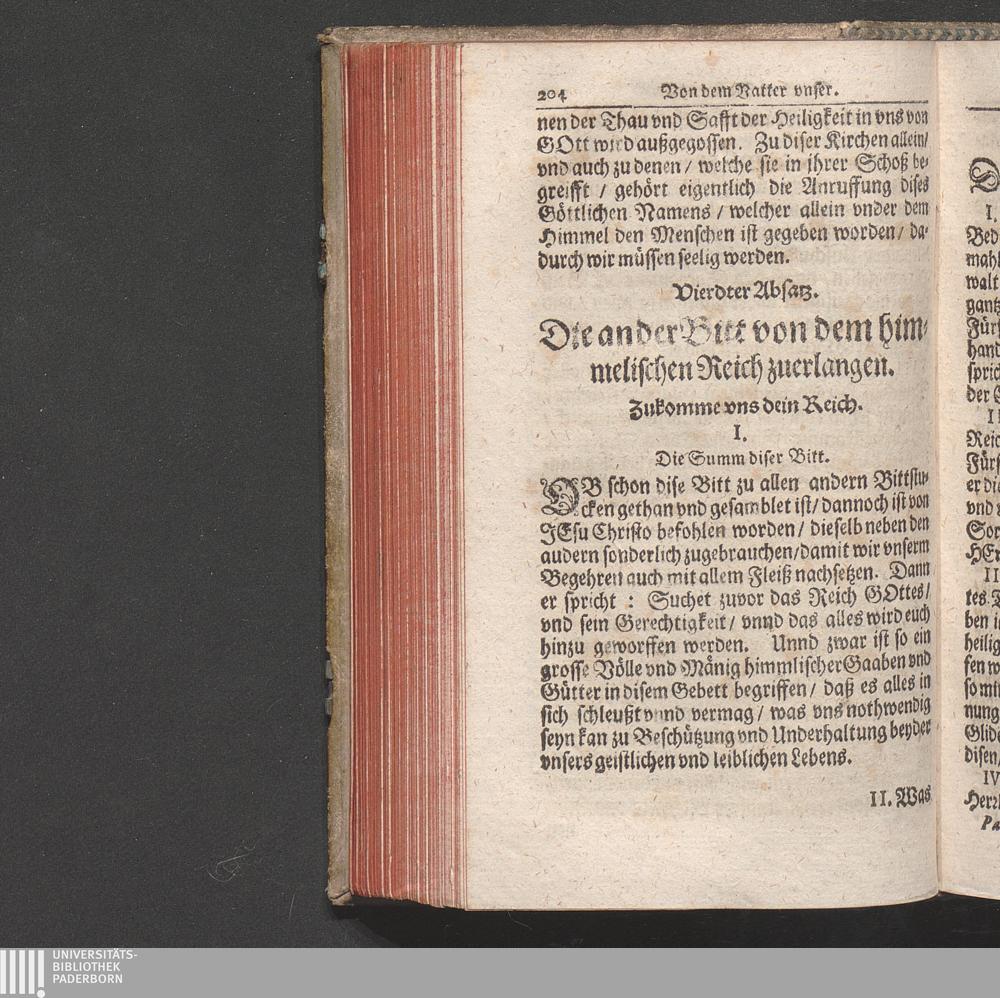 204 Von dem Vatter vnser.
nen der Thau vnd Safft der Heiligkeit in vns von
GOtt wird außgegossen. Zu diser Kirchen allein/
vnd auch zu denen / welche sie in jhrer Schoß be-
greifft / gehört eigentlich die Anruffung dises
Göttlichen Namens / welcher allein vnder dem
Himmel den Menschen ist gegeben worden / da-
durch wir müssen seelig werden.
Vierdter Absatz.
Die ander Bitt von dem him-
melischen Reich zuerlangen.
Zukomme vns dein Reich.
I.
Die Summ diser Bitt.
OB schon dise Bitt zu allen andern Bittstu-
cken gethan vnd gesamblet ist/ dannoch ist von
JEsu Christo befohlen worden / dieselb neben den
andern sonderlich zugebrauchen/damit wir vnserm
Begehren auch mit allem Fleiß nachsetzen. Dann
er spricht : Suchet zuvor das Reich GOttes/
vnd sein Gerechtigkeit / vnnd das alles wird euch
hinzu geworffen werden. Unnd zwar ist so ein
grosse Völle vnd Mänig himmlischer Gaaben vnd
Gütter in disem Gebett begriffen / daß es alles in
sich schleußt vnnd vermag / was vns nothwendig
seyn kan zu Beschützung vnd Underhaltung beyder
vnsers geistlichen vnd leiblichen Lebens.
II. Was
D
I.
Bed
mahl
walt
gantz
Für
hand
spric
der G
II
Reic
Fürs
er die
vnd
Sor
HEr
II
tes
ben i
heilig
fen w
so mi
nung
Glide
disen/
IV
Herrl
Pa
UNIVERSITÄTS-
BIBLIOTHEK
PADERBORN